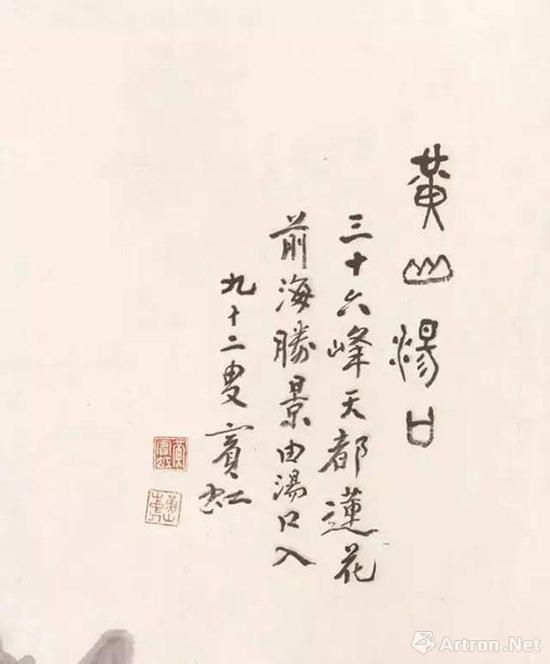 黃山湯口
三十六峰天都蓮花
前海勝景由湯口入
九十二叟賓虹
Artron.Net